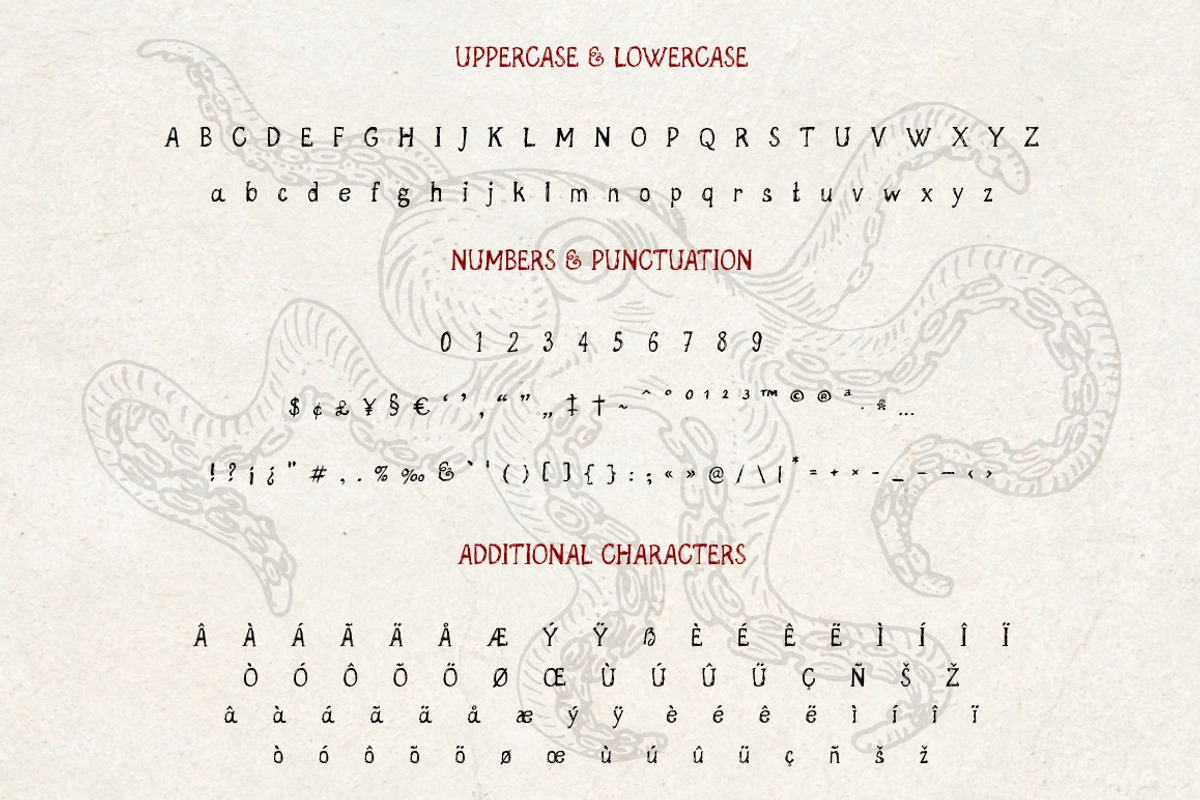 UPPERCASE & LOWERCASE
A B C D E F G H I J K L M N O P Q R S T U V W X Y Z
a b c d e f g h i j k l m n o p q r s t u v w x y z
NUMBERS & PUNCTUATION
0 1 2 3 4 5 6 7 8 9
$ ¢ £ ¥ § € ‘ ’ ‚ “ ” „ ‡ † ~ ^ ° 0 1 2 3 ™ © ® ª · * …
! ? ¡ ¿ " # , . % ‰ & ` ' ( ) [ ] { } : ; « » @ / \ | * = + × - _ – — ‹ ›
ADDITIONAL CHARACTERS
Â À Á Ã Ä Å Æ Ý Ÿ ß È É Ê Ë Ì Í Î Ï
Ò Ó Ô Õ Ö Ø Œ Ù Ú Û Ü Ç Ñ Š Ž
â à á ã ä å æ ý ÿ è é ê ë ì í î ï
ò ó ô õ ö ø œ ù ú û ü ç ñ š ž